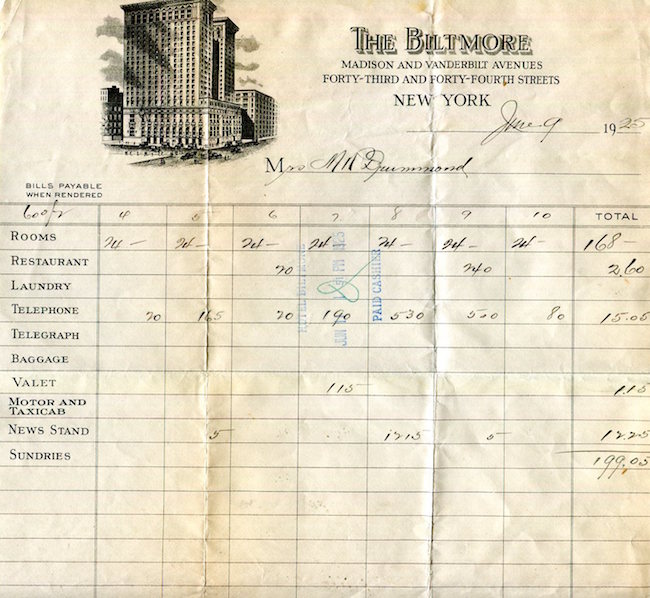 THE BILTMORE
MADISON AND VANDERBILT AVENUES
FORTY-THIRD AND FORTY-FOURTH STREETS
NEW YORK
June 9 1925
Mrs M H Drummond
BILLS PAYABLE
WHEN RENDERED
4 5 6 7 8 9 10 TOTAL
ROOMS 24- 24- 24- 24- 24- 24- 24- 168-
RESTAURANT 20 240 2.60
LAUNDRY
TELEPHONE 20 165 20 190 530 500 80 15.05
TELEGRAPH
BAGGAGE
VALET 115 1.15
MOTOR AND
TAXICAB
NEWS STAND 5 1215 5 12.25
SUNDRIES 199.05
HOTEL BILTMORE
JUN PM 1925
PAID CASHIER